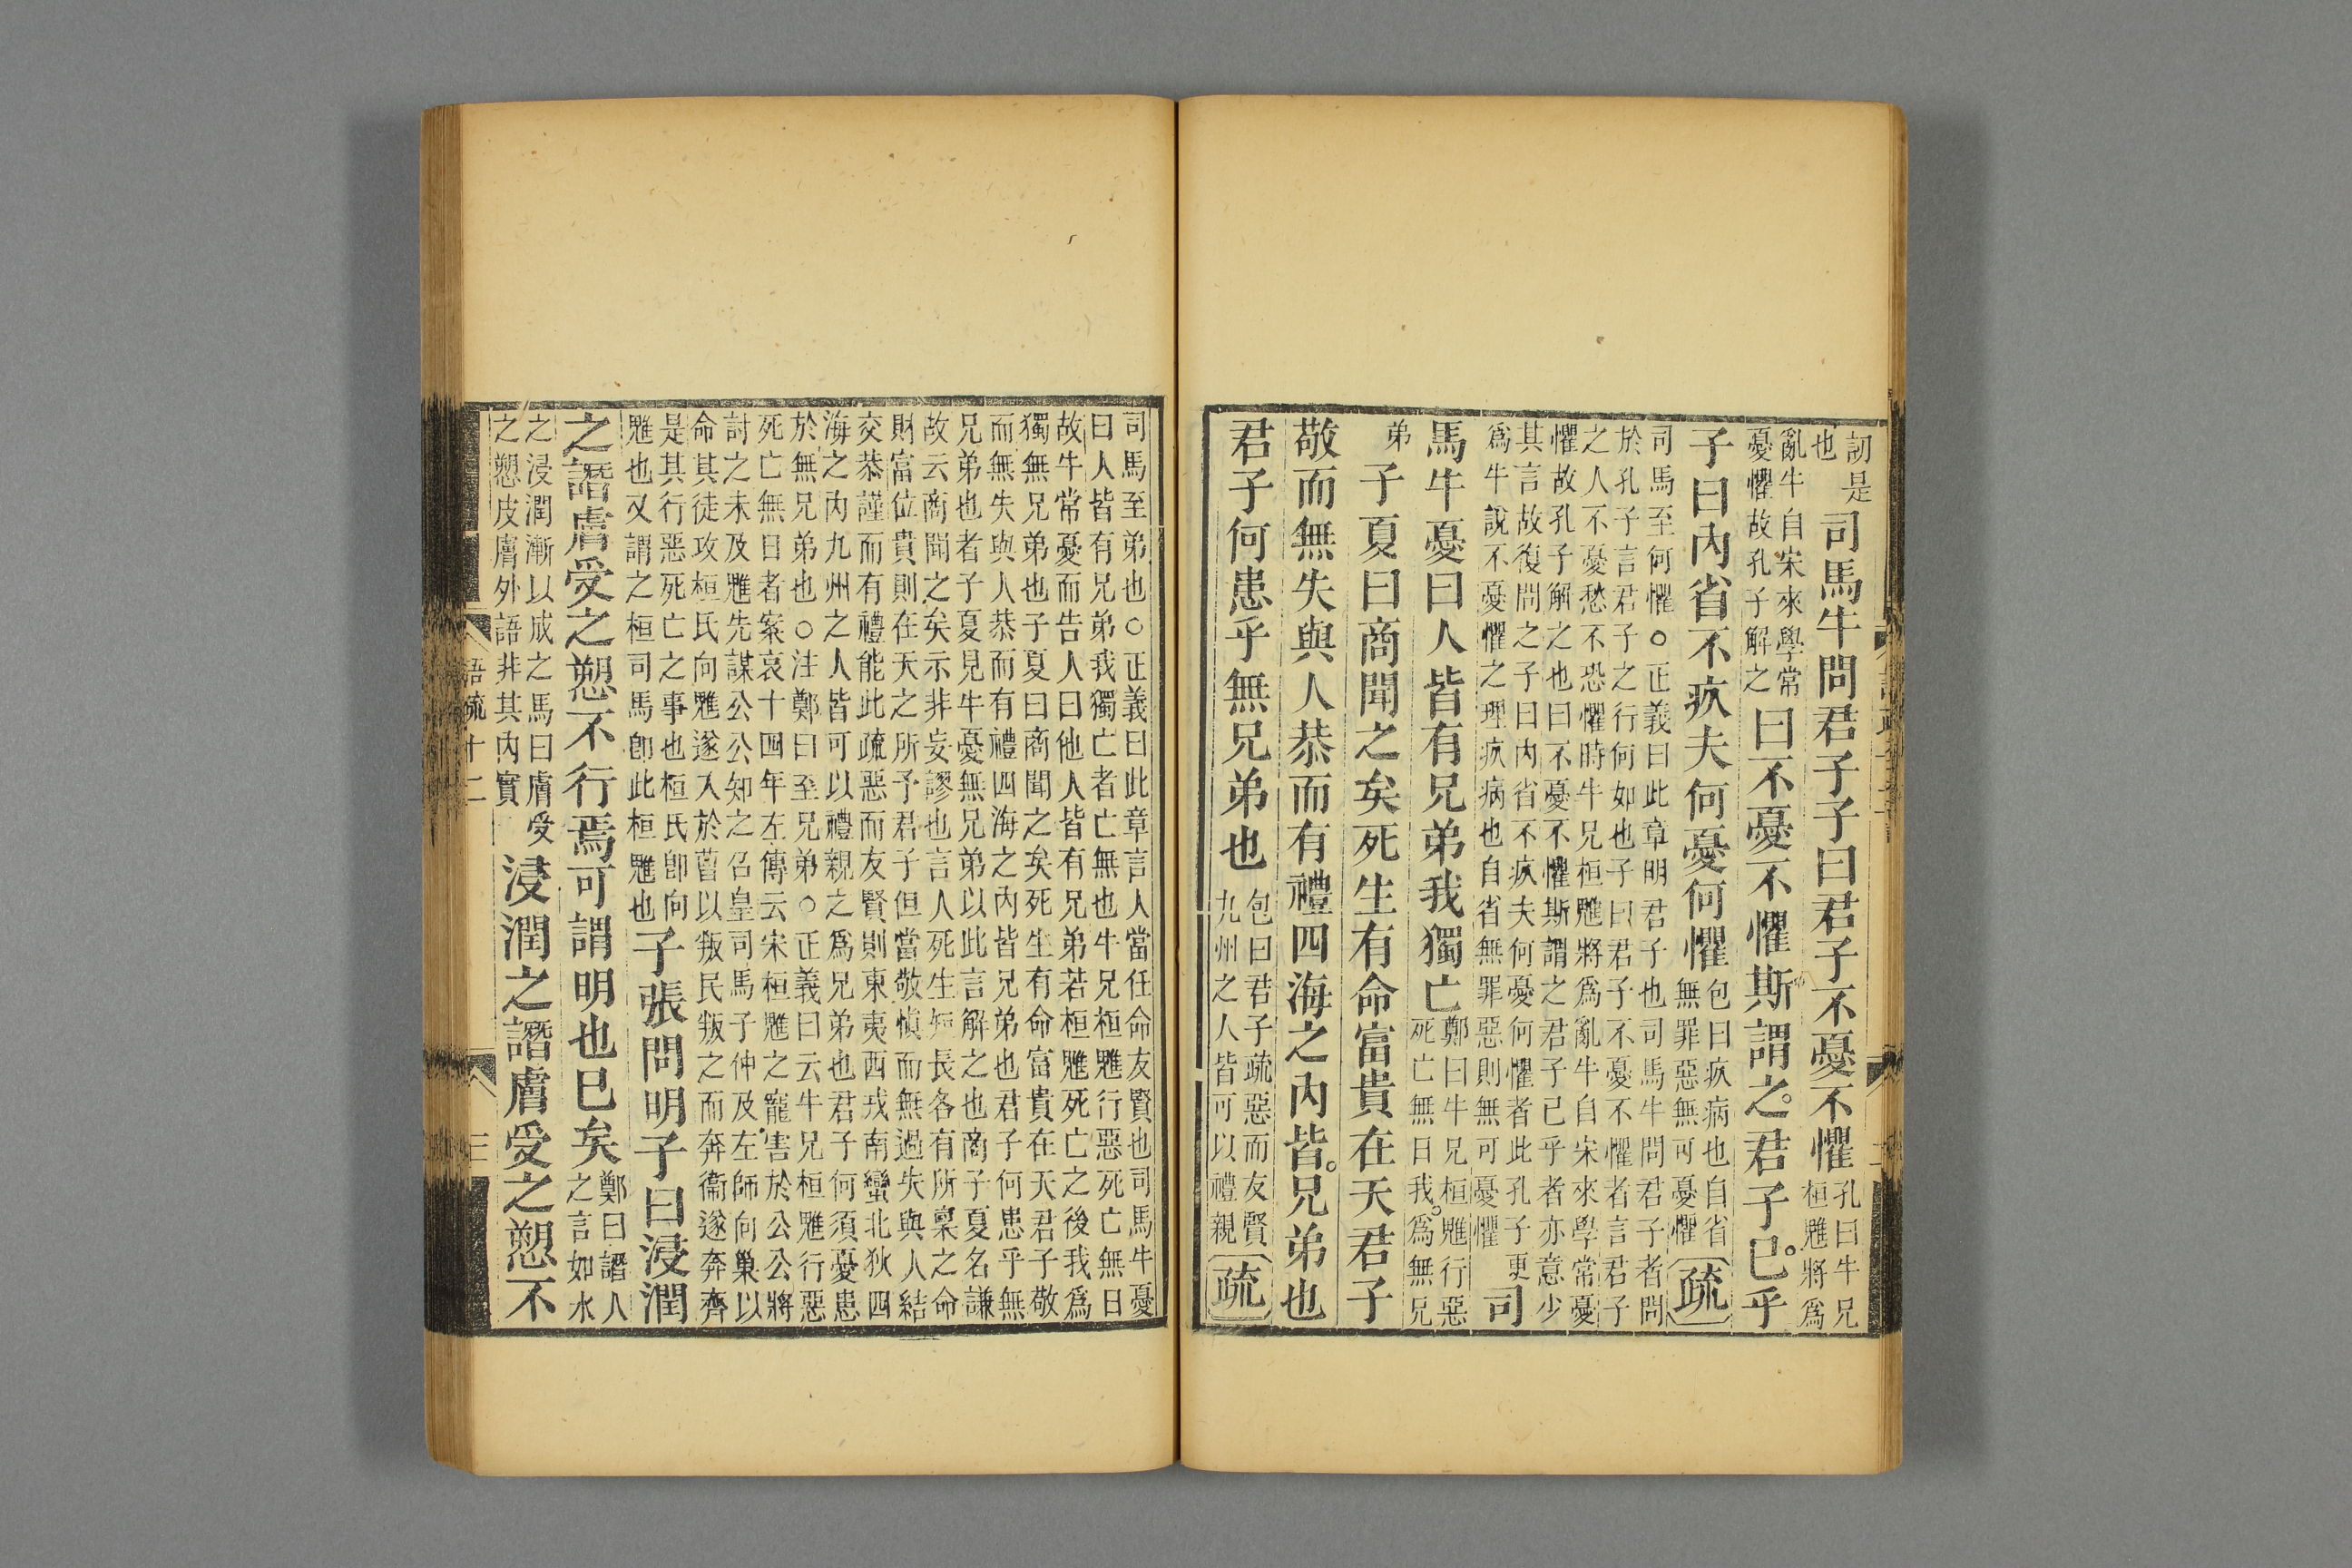 訒是也司馬牛問君子子曰君子不憂不懼孔曰牛兄桓魋將爲
亂牛自宋來學常憂懼故孔子解之曰不憂不懼斯謂之君子已乎
子曰內省不疚夫何憂何懼包曰疚病也自省無罪惡無可憂懼疏
司馬至何懼○正義曰此章明君子也司馬牛問君子者問
於孔子言君子之行何如也子曰君子不憂不懼者言君子
之人不憂愁不恐懼時牛兄桓魋將爲亂牛自宋來學常憂
懼故孔子解之也曰不憂不懼斯謂之君子已乎者亦意少
其言故復問之子曰內省不疚夫何憂何懼者此孔子更
爲牛說不憂懼之理疚病也自省無罪惡則無可憂懼司
馬牛憂曰人皆有兄弟我獨亡鄭曰牛兄桓魋行惡死亡無日我爲無兄
弟子夏曰商聞之矣死生有命富貴在天君子
敬而無失與人恭而有禮四海之內皆兄弟也
君子何患乎無兄弟也包曰君子疏惡而友賢九州之人皆可以禮親疏
司馬至弟也○正義曰此章言人當任命友賢也司馬牛憂
曰人皆有兄弟我獨亡者亡無也牛兄桓魋行惡死亡無日
故牛常憂而告人曰他人皆有兄弟若桓魋死亡之後我爲
獨無兄弟也子夏曰商聞之矣死生有命富貴在天君子敬
而無失與人恭而有禮四海之內皆兄弟也君子何患乎無
兄弟也者子夏見牛憂無兄弟以此言解之也商子夏名謙
故云商聞之矣示非妄謬也言人死生短長各有所稟之命
財富位貴則在天之所予君子但當敬慎而無過失與人結
交恭謹而有禮能此疏惡而友賢則東夷西戎南蠻北狄四
海之內九州之人皆可以禮親之爲兄弟也君子何須憂患
於無兄弟也○注鄭曰至兄弟○正義曰云牛兄桓魋行惡
死亡無日者案哀十四年左傳云宋桓魋之寵害於公公將
討之未及魋先謀公公知之召皇司馬子仲及左師向巢以
命其徒攻桓氏向魋遂入於曹以叛民叛之而奔衞遂奔齊
是其行惡死亡之事也桓氏卽向
魋也又謂之桓司馬卽此桓魋也子張問明子曰浸潤
之譖膚受之愬不行焉可謂明也已矣鄭曰譖人之言如水
之浸潤漸以成之馬曰膚受之愬皮膚外語非其內實浸潤之譖膚受之愬不
語疏十二
三